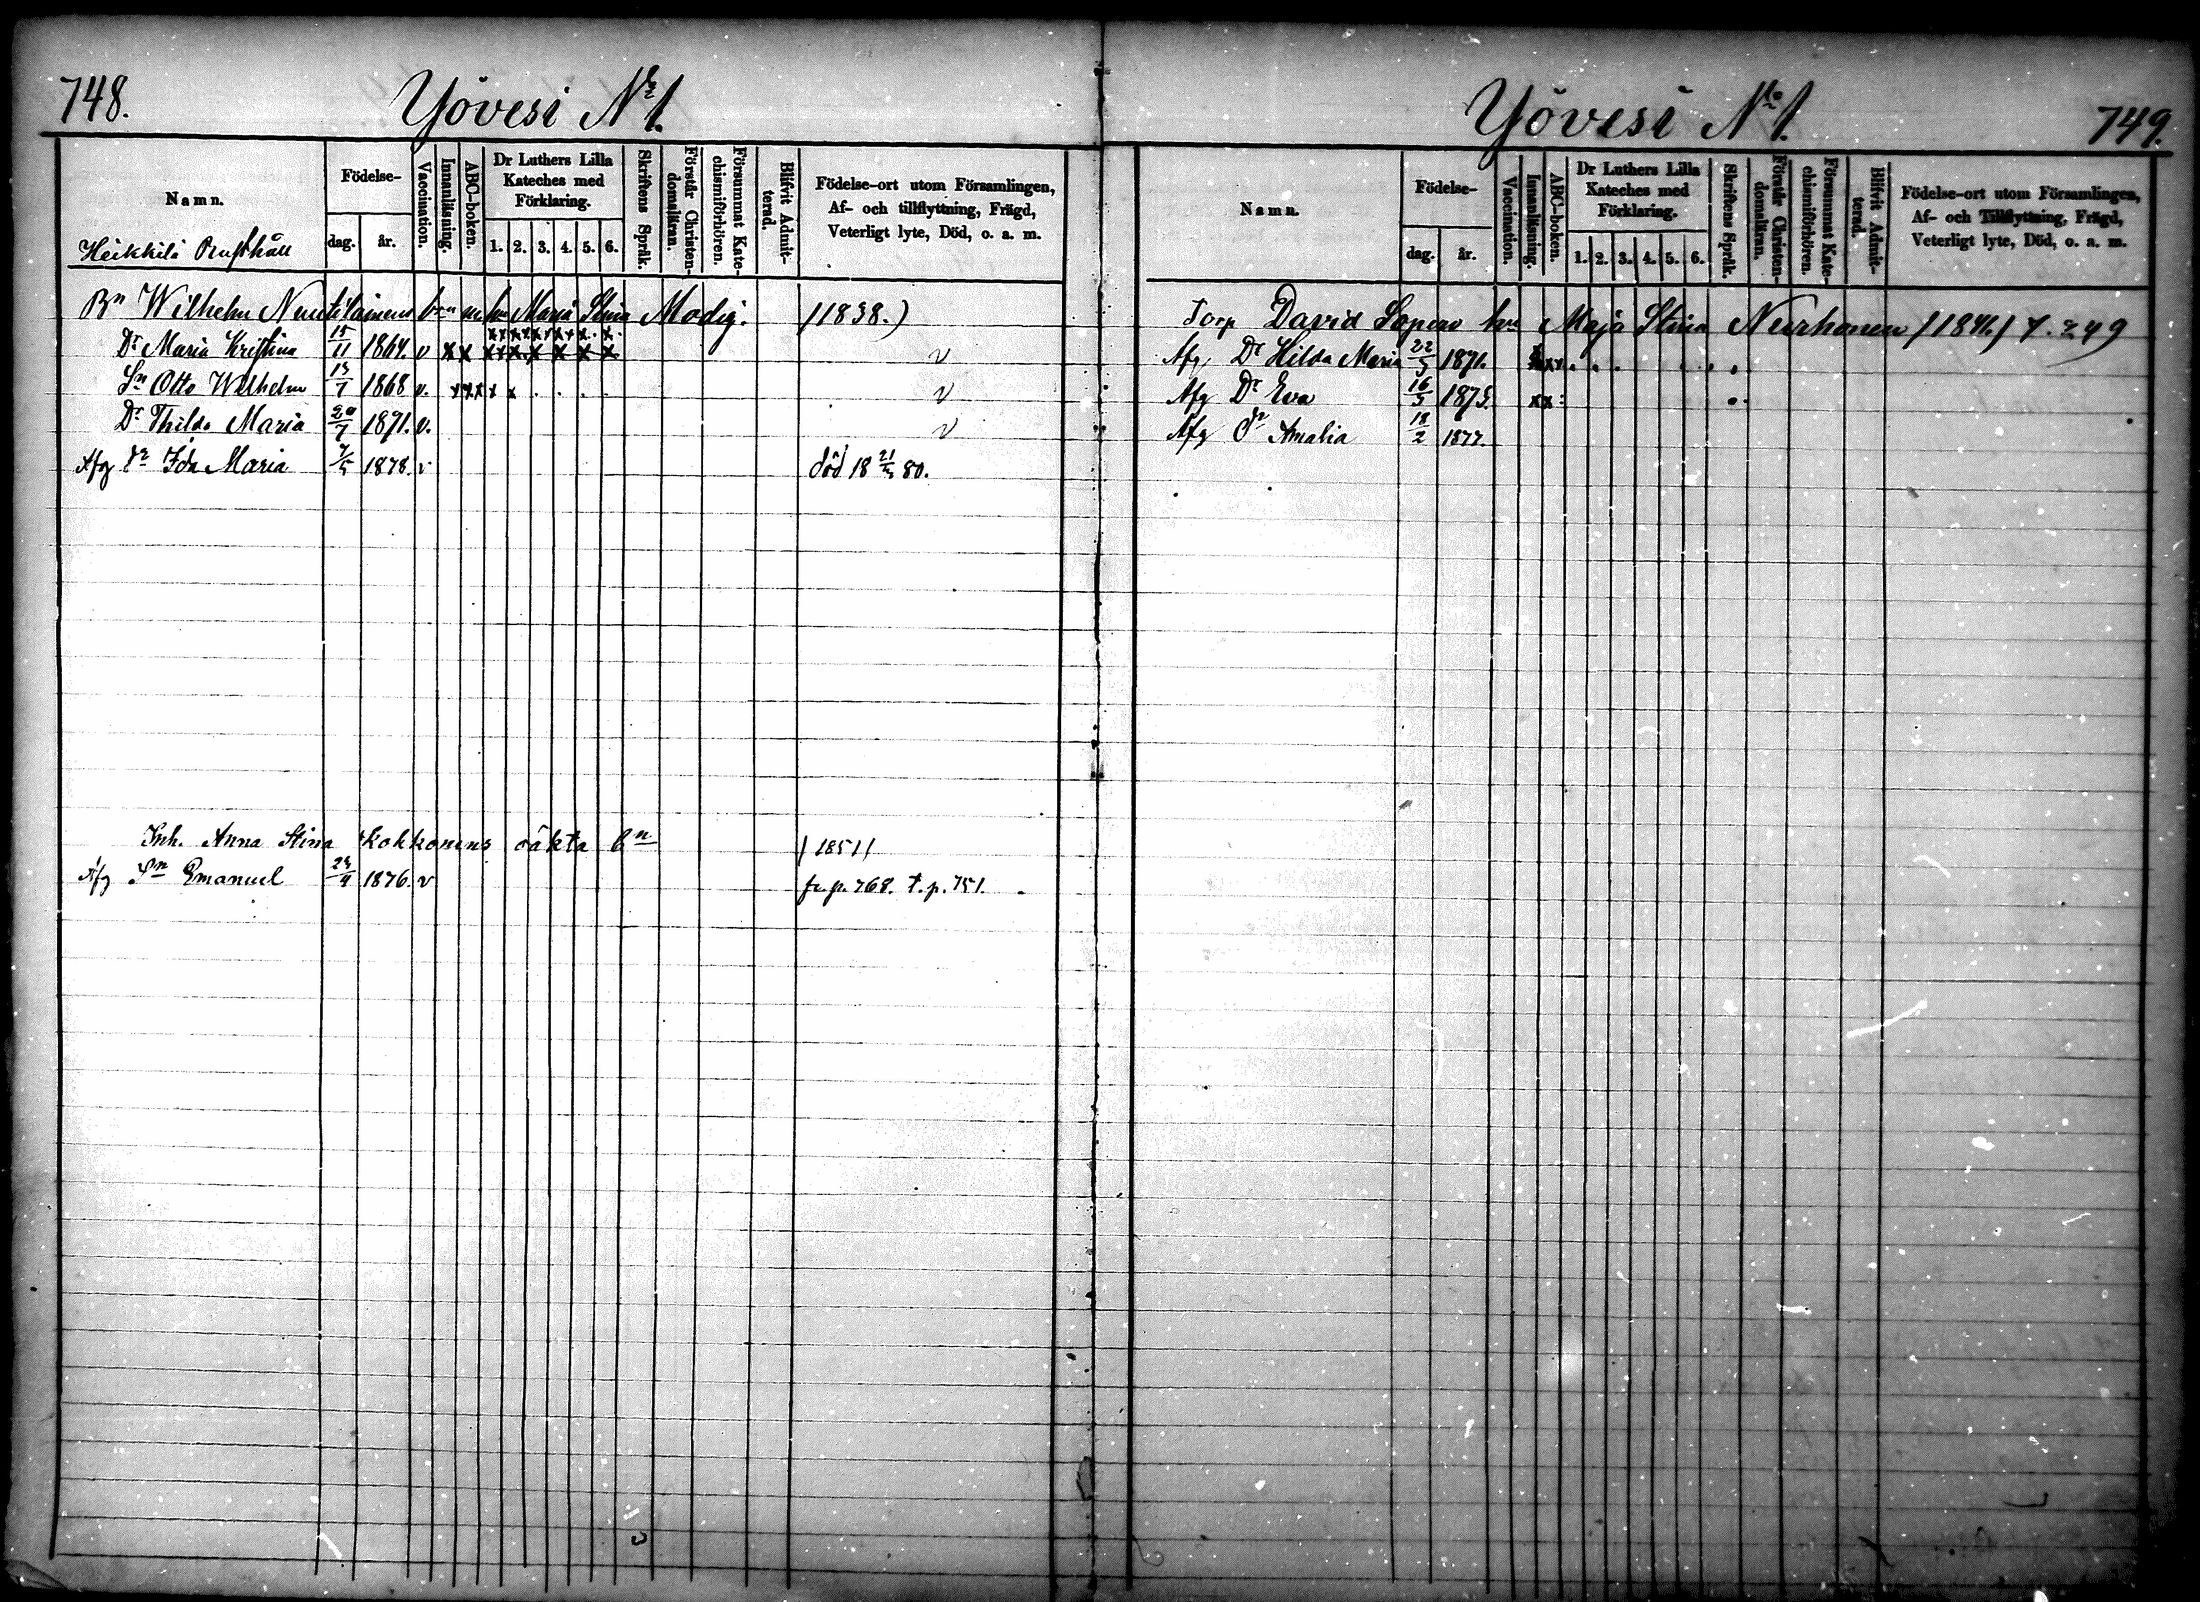 748.
Yövesi No 1.
Namn.
Heikkilä Rusthåll
Födelse-
dag.
år.
Vaccination.
Innanläsning.
ABC-boken.
Dr Luthers Lilla Kateches med Förklaring.
1. 2. 3. 4. 5. 6.
Skriftens Språk.
Förstår Christendomsläran.
Försummat Katechismiförhören.
Blifvit Admitterad.
Födelse-ort utom Församlingen,
Af- och tillflyttning, Frägd,
Veterligt lyte, Död, o. a. m.
Bn Wilhelm bn m hu Maria Stina Modig. (1838.)
Dr Maria Kristina 15/11 1864. v x x x x x x x x v
Sn Otto Wilhelm 13/7 1868 v. x x x x x . . . . v
Dr Thilda Maria 20/7 1871. v. v
Afg Dr Ida Maria 7/5 1878. v död 18 21/5 80.
Inh. Anna Stina Kokkonens oäkta bn /1851/
Afg Sn Emanuel 24/9 1876. v fr. p. 768. t. p. 751.
749.
Yövesi No 1.
Namn.
Födelse-
dag.
år.
Vaccination.
Innanläsning.
ABC-boken.
Dr Luthers Lilla Kateches med Förklaring.
1. 2. 3. 4. 5. 6.
Skriftens Språk.
Förstår Christendomsläran.
Försummat Katechismiförhören.
Blifvit Admitterad.
Födelse-ort utom Församlingen,
Af- och Tillflyttning, Frägd,
Veterligt lyte, Död, o. a. m.
Torp David hu Maja Stina Nurhonen /1841/ 7. 249
Afg Dr Hilda Maria 22/5 1871.
Afg Dr Eva 16/5 1875. x x
Afg Dr Amalia 18/2 1877.